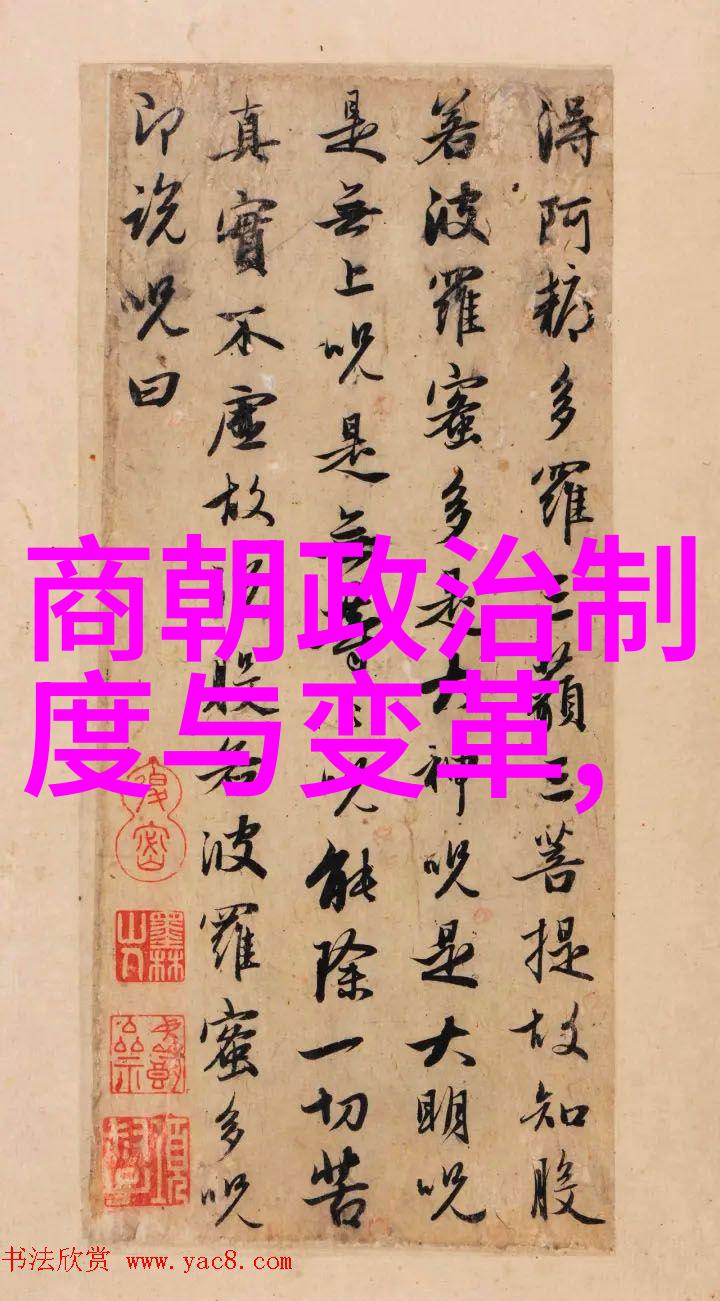 得阿耨多羅三藐三菩提故知般
若波羅蜜多是大神呪是大明呪
是無上呪是無等等呪能除一切苦
真實不虛故說般若波羅蜜多呪
即說呪曰
墨林山人
商朝政治制
度与变革,
书法欣赏 www.yac8.com